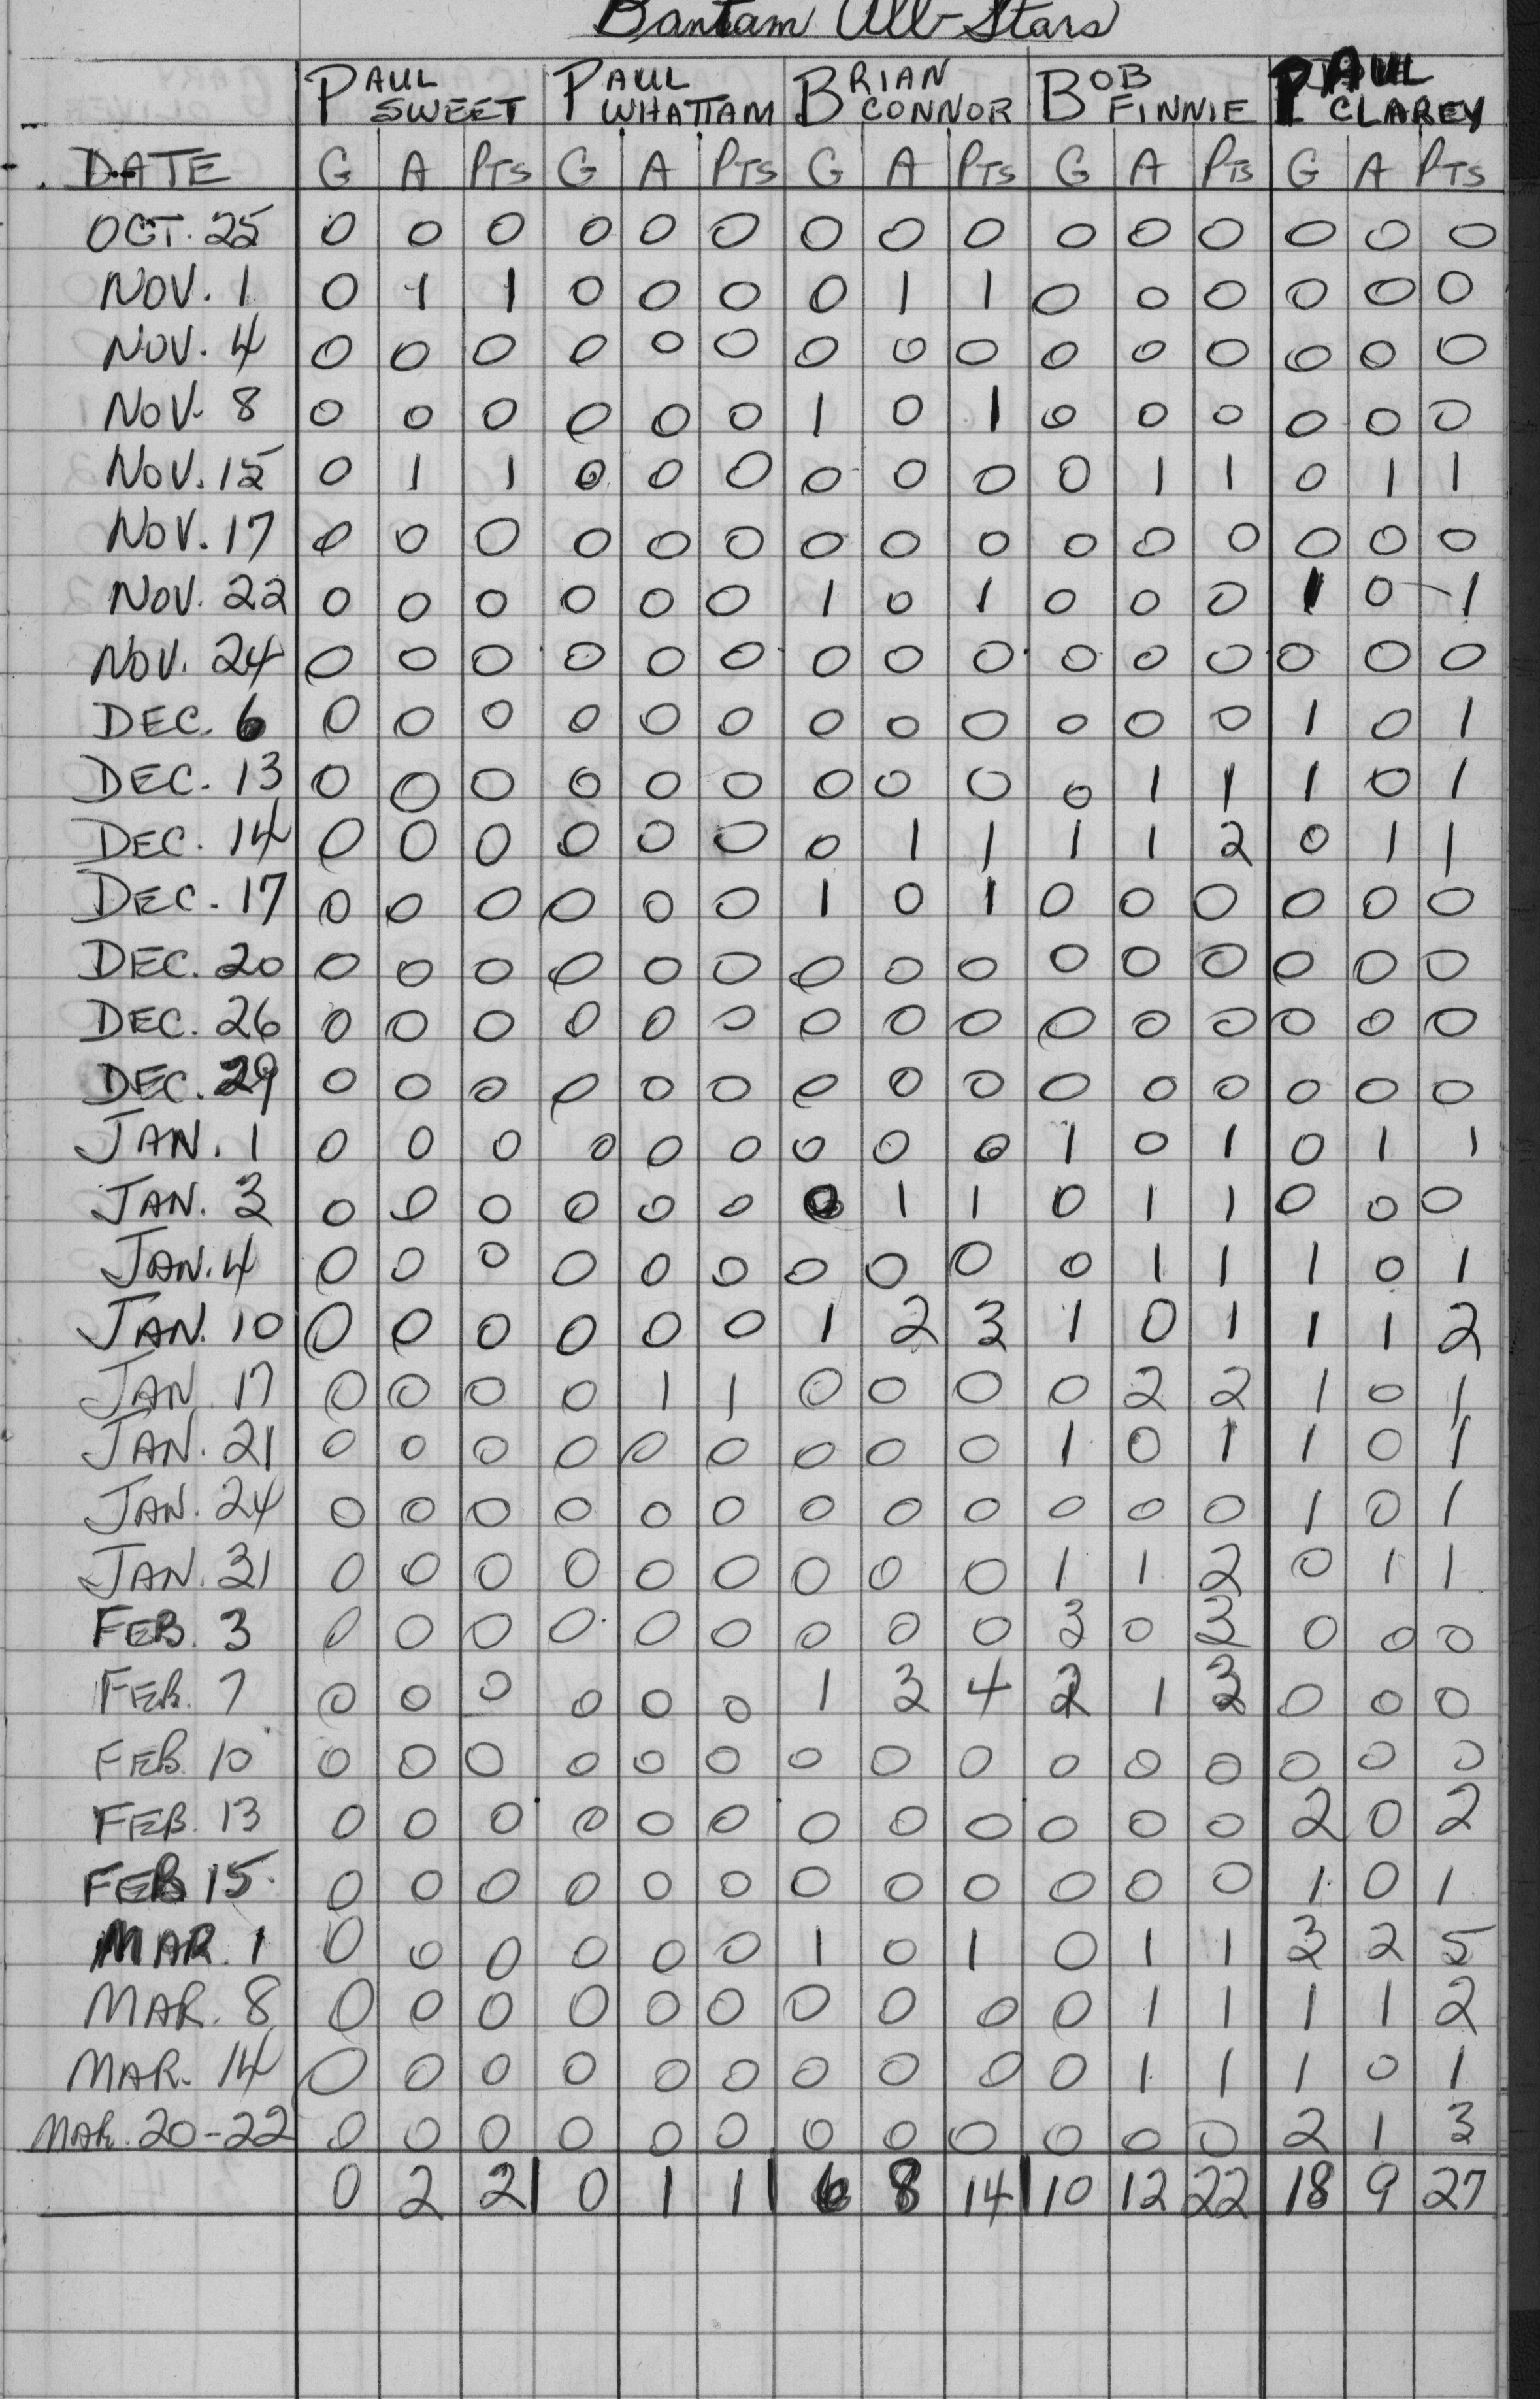 Bantam All-Stars
PAUL SWEET PAUL WHATTAM BRIAN CONNOR BOB FINNIE PAUL CLAREY
DATE G A PTS G A PTS G A PTS G A PTS G A PTS
OCT. 25 0 0 0 0 0 0 0 0 0 0 0 0 0 0 0
NOV. 1 0 1 1 0 0 0 0 1 1 0 0 0 0 0 0
NOV. 4 0 0 0 0 0 0 0 0 0 0 0 0 0 0 0
NOV. 8 0 0 0 0 0 0 1 0 1 0 0 0 0 0 0
NOV. 15 0 1 1 0 0 0 0 0 0 0 1 1 0 1 1
NOV. 17 0 0 0 0 0 0 0 0 0 0 0 0 0 0 0
NOV. 22 0 0 0 0 0 0 1 0 1 0 0 0 1 0 1
NOV. 24 0 0 0 0 0 0 0 0 0 0 0 0 0 0 0
DEC. 6 0 0 0 0 0 0 0 0 0 0 0 0 1 0 1
DEC. 13 0 0 0 0 0 0 0 0 0 0 1 1 1 0 1
DEC. 14 0 0 0 0 0 0 0 1 1 1 1 2 0 1 1
DEC. 17 0 0 0 0 0 0 1 0 1 0 0 0 0 0 0
DEC. 20 0 0 0 0 0 0 0 0 0 0 0 0 0 0 0
DEC. 26 0 0 0 0 0 0 0 0 0 0 0 0 0 0 0
DEC. 29 0 0 0 0 0 0 0 0 0 0 0 0 0 0 0
JAN. 1 0 0 0 0 0 0 0 0 0 1 0 1 0 1 1
JAN. 3 0 0 0 0 0 0 0 1 1 0 1 1 0 0 0
JAN. 4 0 0 0 0 0 0 0 0 0 0 1 1 1 0 1
JAN. 10 0 0 0 0 0 0 1 2 3 1 0 1 1 1 2
JAN 17 0 0 0 0 1 1 0 0 0 0 2 2 1 0 1
JAN. 21 0 0 0 0 0 0 0 0 0 1 0 1 1 0 1
JAN. 24 0 0 0 0 0 0 0 0 0 0 0 0 1 0 1
JAN. 31 0 0 0 0 0 0 0 0 0 1 1 2 0 1 1
FEB. 3 0 0 0 0 0 0 0 0 0 3 0 3 0 0 0
FEB. 7 0 0 0 0 0 0 1 3 4 2 1 3 0 0 0
FEB. 10 0 0 0 0 0 0 0 0 0 0 0 0 0 0 0
FEB. 13 0 0 0 0 0 0 0 0 0 0 0 0 2 0 2
FEB 15 0 0 0 0 0 0 0 0 0 0 0 0 1 0 1
MAR. 1 0 0 0 0 0 0 1 0 1 0 1 1 3 2 5
MAR. 8 0 0 0 0 0 0 0 0 0 0 1 1 1 1 2
MAR. 14 0 0 0 0 0 0 0 0 0 0 1 1 1 0 1
MAR. 20-22 0 0 0 0 0 0 0 0 0 0 0 0 2 1 3
0 2 2 0 1 1 6 8 14 10 12 22 18 9 27